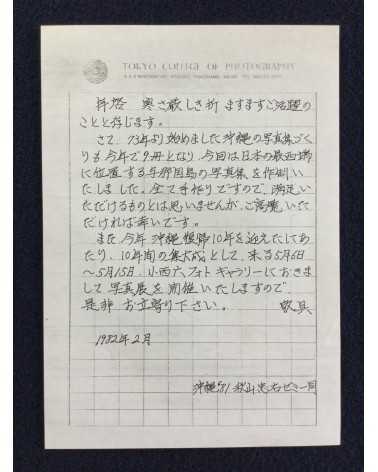 TOKYO COLLEGE OF PHOTOGRAPHY
拝啓 寒さ厳しき折 ますますご活躍の
ことと存じます。
さて、'73年より始めました沖縄の写真集づく
りも今年で9冊となり、今回は日本の最西端
に位置する与那国島の写真集を作制い
たしました。全て手作りですので、満足い
ただけるものとは思いませんが、ご高覧いた
だければ幸いです。
また今年 沖縄復帰10年を迎えたにあ
たり、10年間の集大成として、来る5月6日
〜5月15日、小西六フォトギャラリーにおきま
して写真展を開催いたしますので、
是非 お立寄り下さい。 敬具
1982年2月
沖縄'81 秋山忠右ゼミ一同